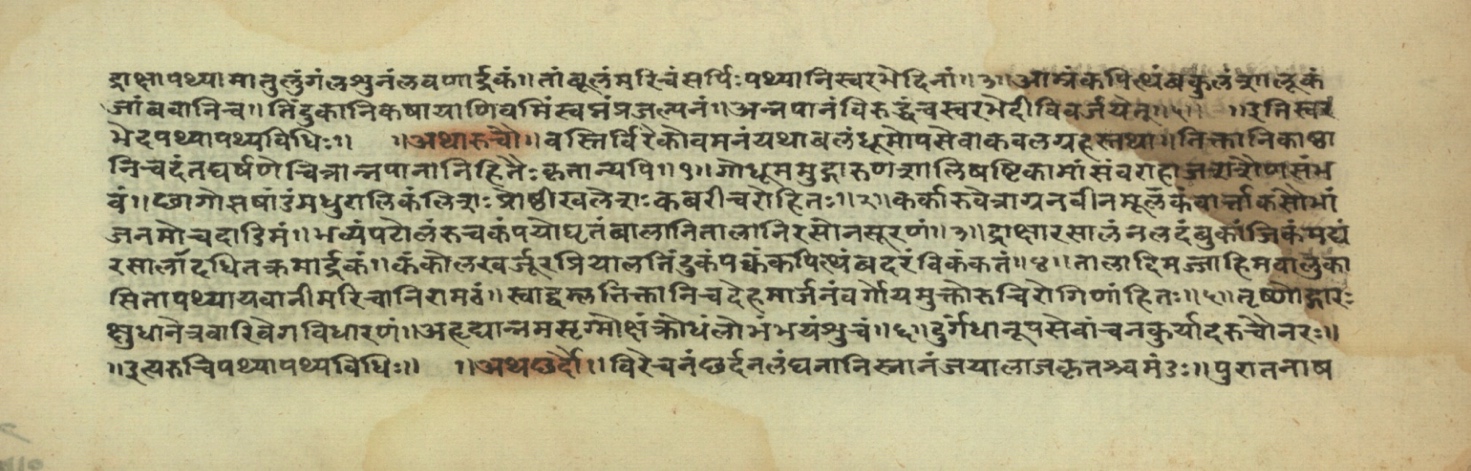 द्राक्षापथ्यामातुलुंगंलशुनंलवणार्द्रकं॥तांबूलंमरिचंसर्पिःपथ्यानिस्वरभेदिनां॥३॥आम्रंकपित्थंबकुलंशालूकं
जांबवानिच॥तिंदुकानिकषायाणिवमिंस्वप्नंप्रजल्पनं॥अन्नपानंविरुद्धंचस्वरभेदीविवर्जयेत्॥५॥ ॥इतिस्वर
भेदपथ्यापथ्यविधिः॥ ॥अथारुचौ॥वस्तिर्विरेकोवमनंयथाबलंधूमोपसेवाकवलग्रहस्तथा॥तिक्तानिकाष्ठा
निचदंतघर्षणेचित्रान्नपानानिहितैःकृतान्यपि॥१॥गोधूममुद्गारुणशालिषष्टिकामांसंवराहाजशशैणसंभ
वं॥छागोझषांडंमधुरालिकंलिशःप्रोष्ठीखलेशःकवरीचरोहितः॥२॥कर्कारुवेत्राग्रनवीनमूलकंवार्त्ताकसोभां
जनमोचदाडिमं॥भव्यंपटोलंरुचकंपयोघृतंबालानितालानिरसोनसूरणं॥३॥द्राक्षारसालंनलदंबुकांजिकंमद्यं
रसालांदधितक्रमार्द्रकं॥कंकोलखर्जूरप्रियालतिंदुकंपक्वंकपित्थंबदरंविकंकतं॥४॥तालास्थिमज्जाहिमवालुका
सितापथ्यायवानीमरिचानिरामठं॥स्वाद्वम्लतिक्तानिचदेहमार्जनंवर्गोयमुक्तोरुचिरोगिणांहितः॥५॥तृष्णोद्गारः
क्षुधानेत्रवारिवेगविधारणं॥अहृद्यान्नमसृग्मोक्षंक्रोधंलोभंभयंशुचं॥६॥दुर्गंधानूपसेवांचनकुर्यादरुचौनरः॥
॥इत्यरुचिपथ्यापथ्यविधिः॥ ॥अथछर्दौ॥विरेचनंछर्दनलंघनानिस्नानंजयालाजकृतश्चमंडः॥पुरातनाष